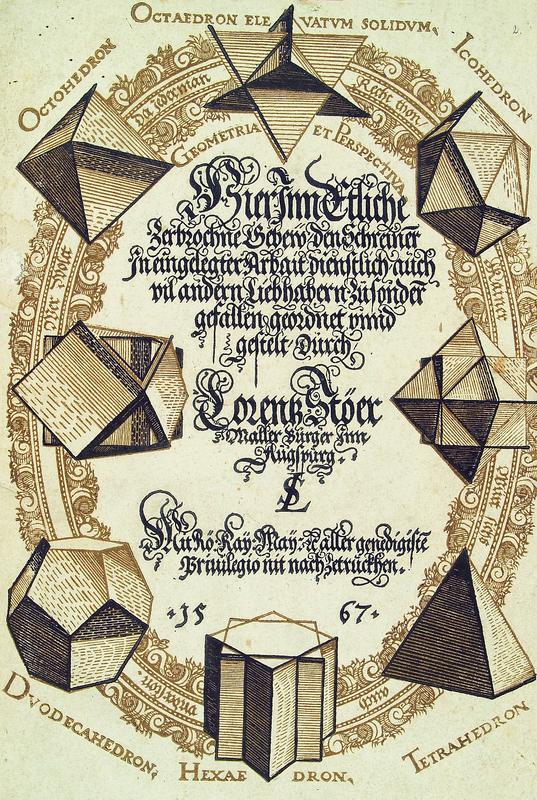 OCTAEDRON ELEVATVM SOLIDVM.
2.
OCTOHEDRON
ICOHEDRON
GEOMETRIA ET PERSPECTIVA
Hier Inn Etliche
Zerbrochne Gebew, den Schreiner
In eingelegter Arbait dienstlich, auch
vil andern Liebhabern zu sonder
gefallen geordnet vnnd
gestelt Durch
Lorentz Stöer
Maller Burger Inn
Augspurg.
LS
Mit Rö. Kay. May. ꝛc aller genedigiste
Priuilegio nit nach zetruckhen.
·15 67·
DVODECAHEDRON,
HEXAEDRON,
TETRAHEDRON